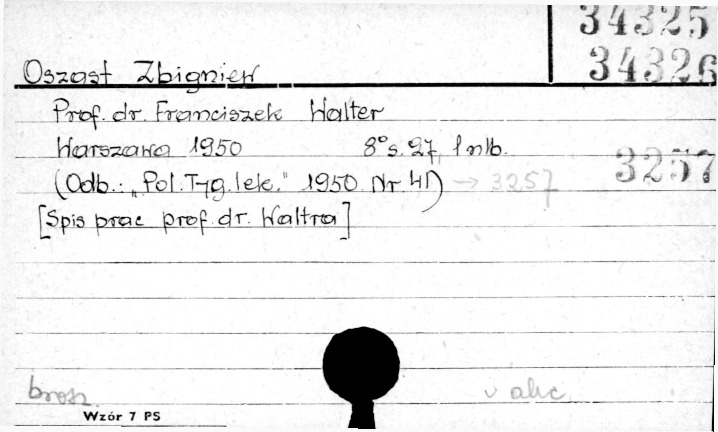 34325
34326
Oszast Zbigniew
Prof. dr. Franciszek Walter
Warszawa 1950 8° s. 27, 1 nlb.
3257
(Odb.: „Pol. Tyg. lek." 1950 Nr 41) → 3257
[Spis prac prof. dr. Waltra]
brosz.
v abc
Wzór 7 PS